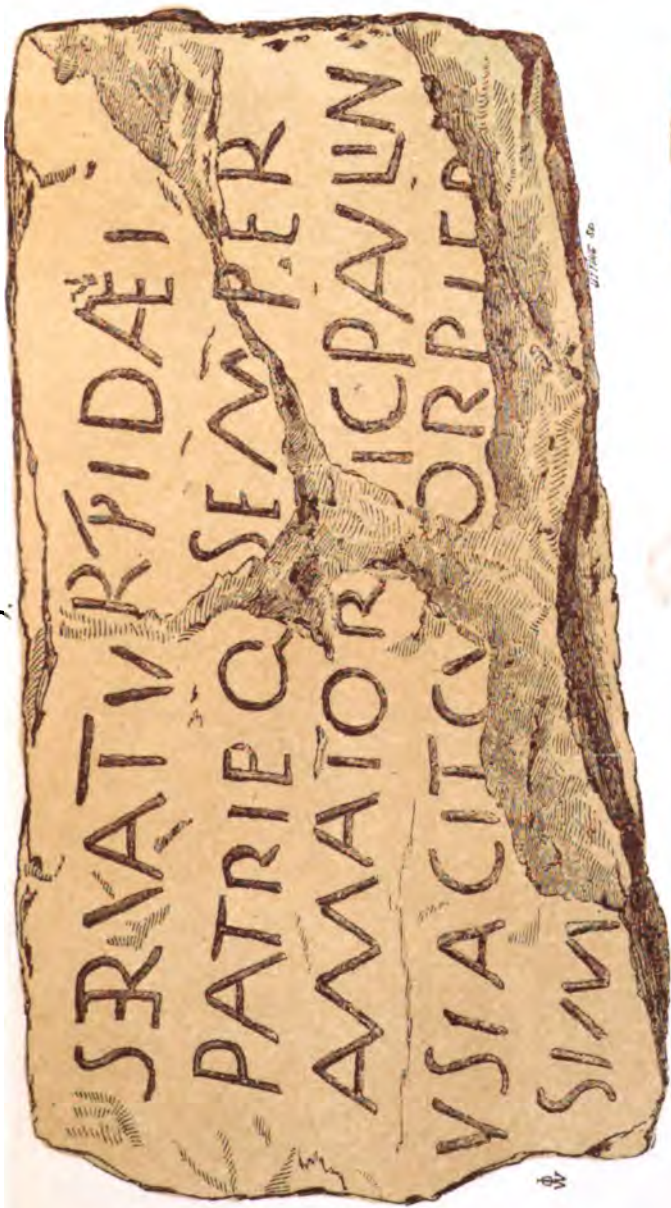 SERVATVR FIDÆI
PATRIEQ SEMPER
AMATOR HIC PAVLIN
VS IACIT CV ORPIE
SIM
UTTING SC.